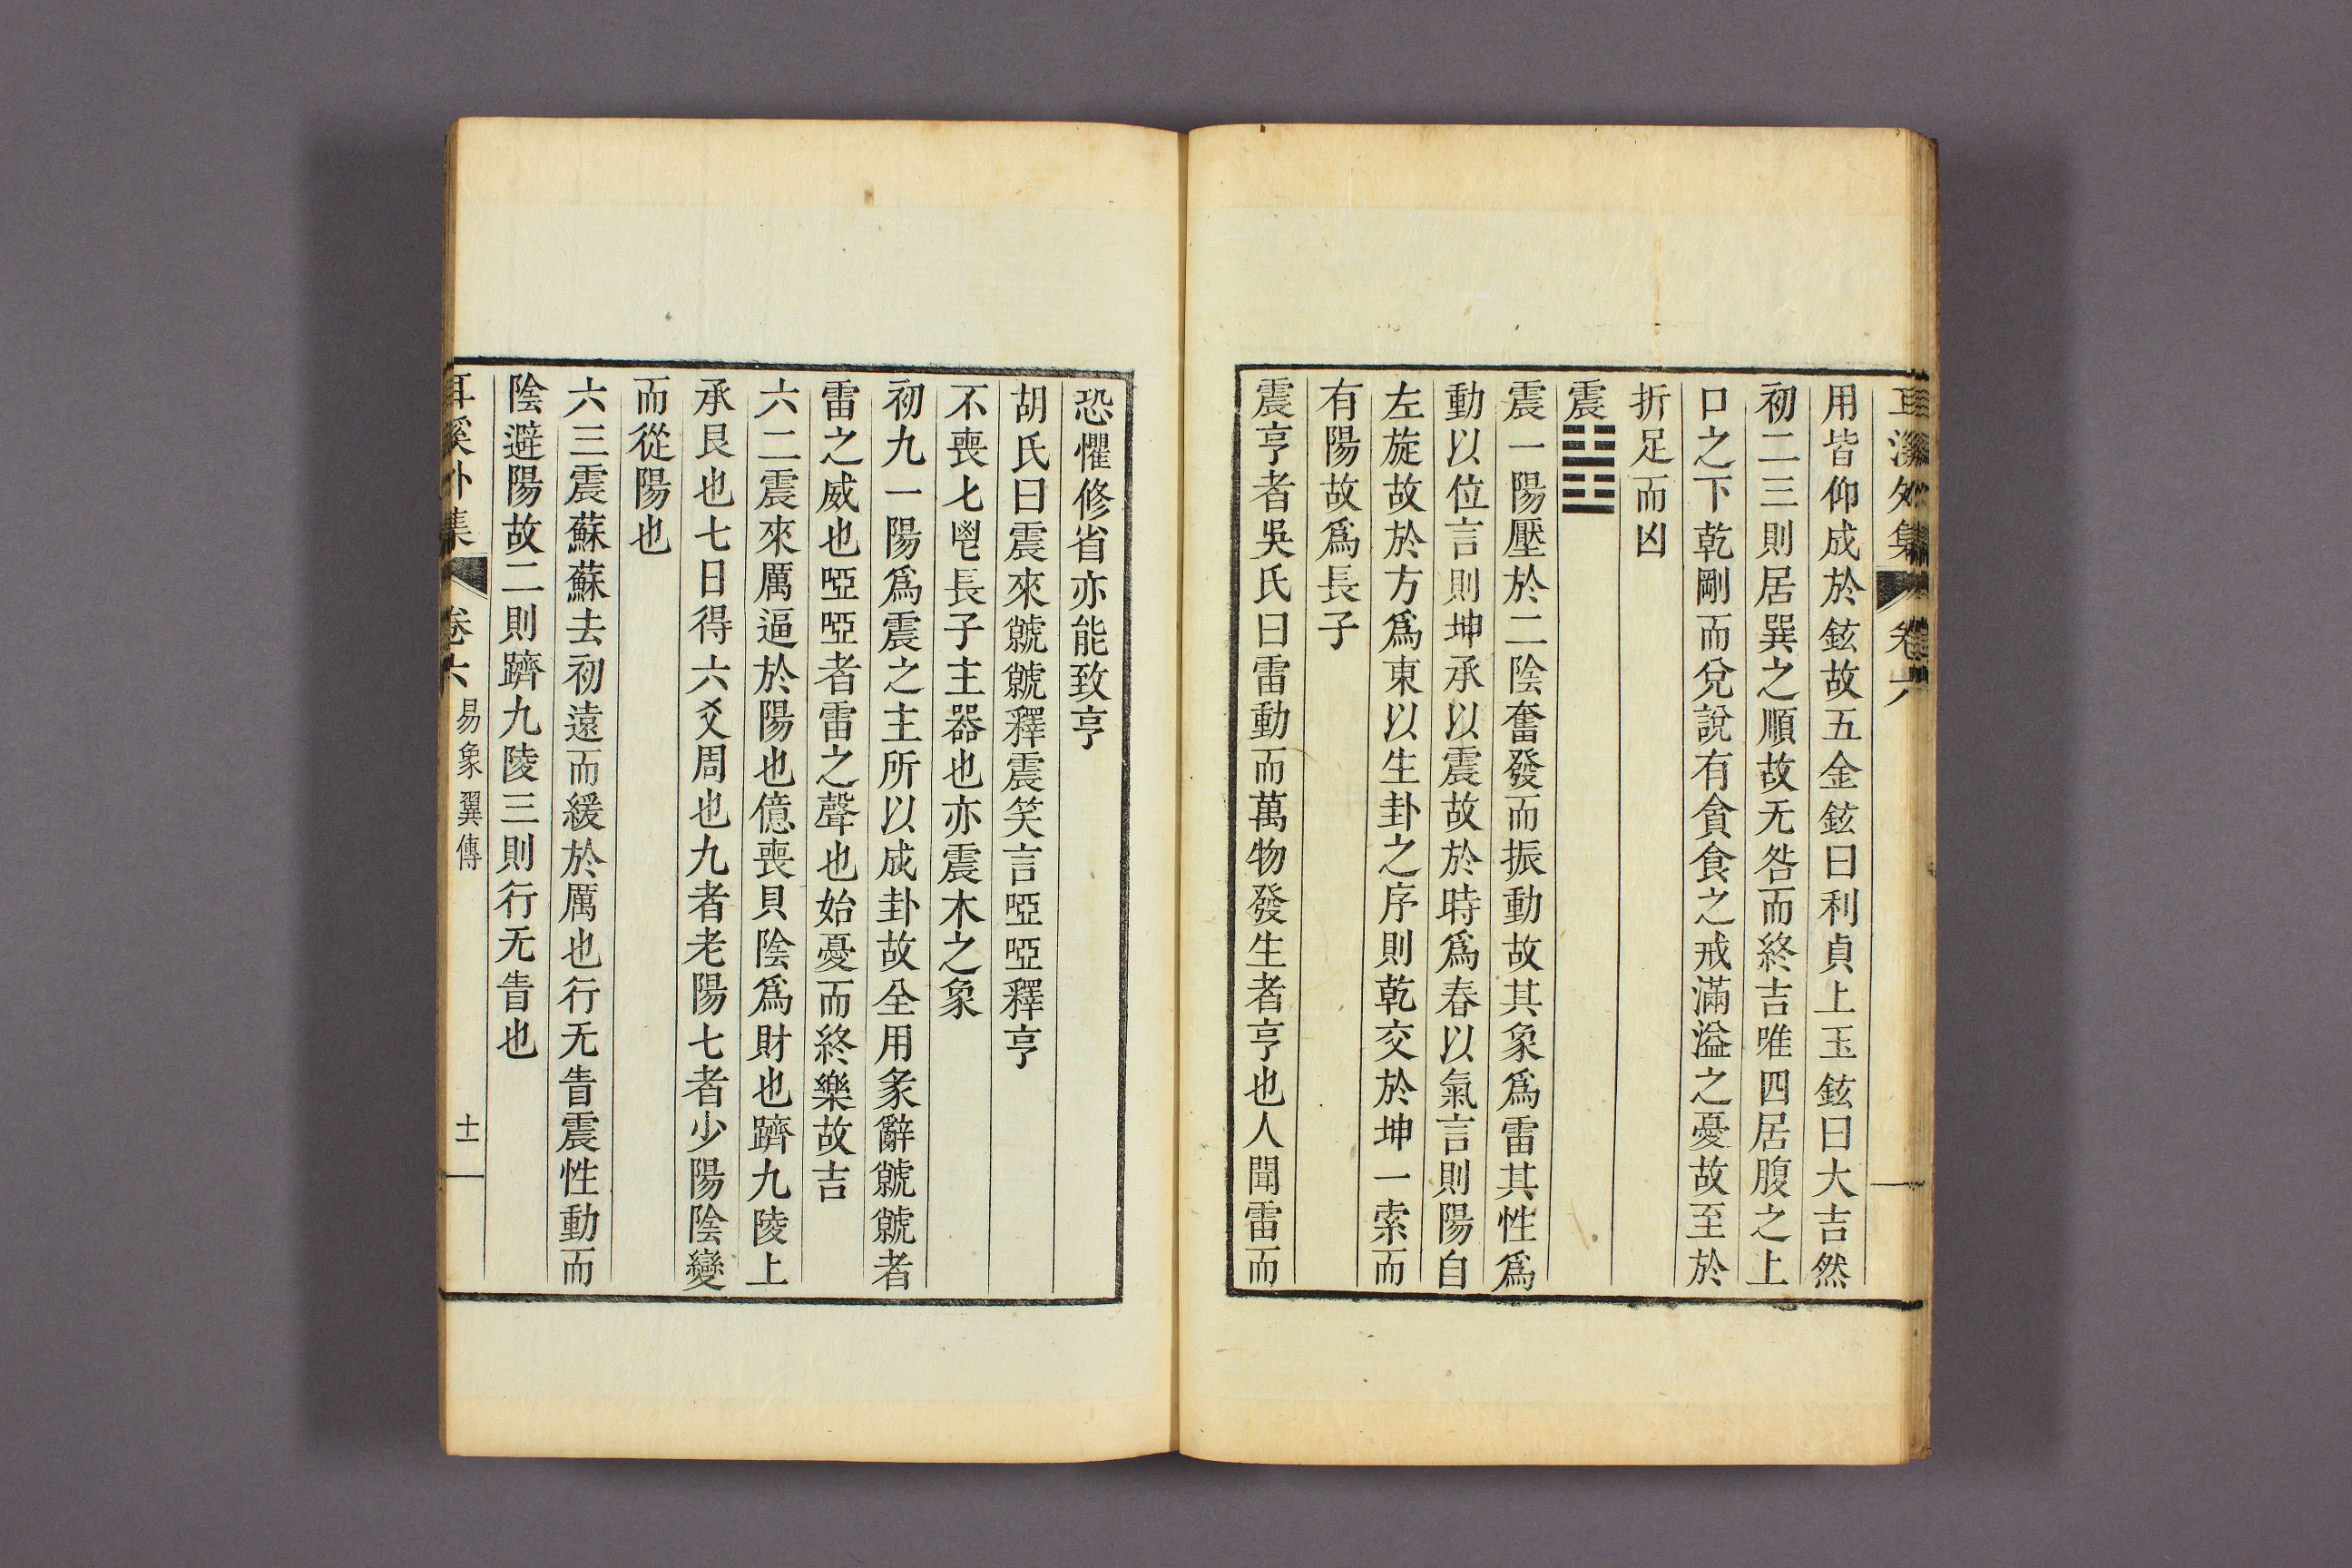 耳溪外集 卷六
用皆仰成於鉉故五金鉉曰利貞上玉鉉曰大吉然
初二三則居巽之順故无咎而終吉唯四居腹之上
口之下乾剛而兌說有貪食之戒滿溢之憂故至於
折足而凶
震䷲
震一陽壓於二陰奮發而振動故其象爲雷其性爲
動以位言則坤承以震故於時爲春以氣言則陽自
左旋故於方爲東以生卦之序則乾交於坤一索而
有陽故爲長子
震亨者吳氏曰雷動而萬物發生者亨也人聞雷而
恐懼修省亦能致亨
胡氏曰震來虩虩釋震笑言啞啞釋亨
不喪匕鬯長子主器也亦震木之象
初九一陽爲震之主所以成卦故全用彖辭虩虩者
雷之威也啞啞者雷之聲也始憂而終樂故吉
六二震來厲逼於陽也億喪貝陰爲財也躋九陵上
承艮也七日得六爻周也九者老陽七者少陽陰變
而從陽也
六三震蘇蘇去初遠而緩於厲也行无眚震性動而
陰避陽故二則躋九陵三則行无眚也
耳溪外集 卷六 易象翼傳 十一